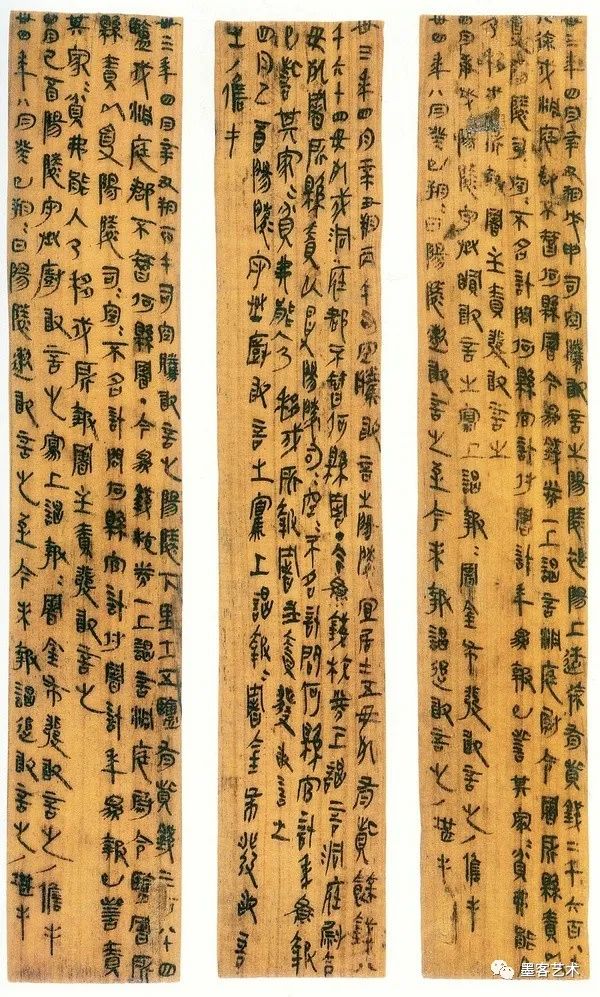 卅三年四月辛丑朔戊申司空騰敢言之陽陵褆陽上造徐有貲錢二千六百八
十八徐戍洞庭郡不智何縣署今為錢校券一上謁言洞庭尉令署所縣責以
受陽陵司〻空〻不名計問何縣官計付署計年為報已訾其家〻貧弗能入
乃移戍所報署主責發敢言之
四月庚戌陽陵守丞䐜敢言之寫上謁報〻署金布發敢言之/儋手
卅四年八月癸巳朔〻日陽陵遬敢言之至今未報謁追敢言之/堪手
卅三年四月辛丑朔丙午司空騰敢言之陽陵宜居士五毋死有貲餘錢八
千六十四毋死戍洞庭郡不智何縣署·今為錢校券一上謁言洞庭尉令
毋死署所縣責以受陽陵司〻空〻不名計問何縣官計年為報
已訾其家〻貧弗能入乃移戍所報署主責發敢言之
四月己酉陽陵守丞廚敢言之寫上謁報〻署金布發敢言
之/儋手
卅三年四月辛丑朔丙午司空騰敢言之陽陵下里士五鹽有貲錢三百八十四
鹽戍洞庭郡不智何縣署·今為錢校券一上謁言洞庭尉令鹽署所
縣責以受陽陵司〻空〻不名計問何縣官計付署計年為報已訾責
其家〻貧弗能入乃移戍所報署主責發敢言之
四月己酉陽陵守丞廚敢言之寫上謁報〻署金布發敢言之/儋手
卅四年八月癸巳朔〻日陽陵遬敢言之至今未報謁追敢言之/堪手
墨客艺术